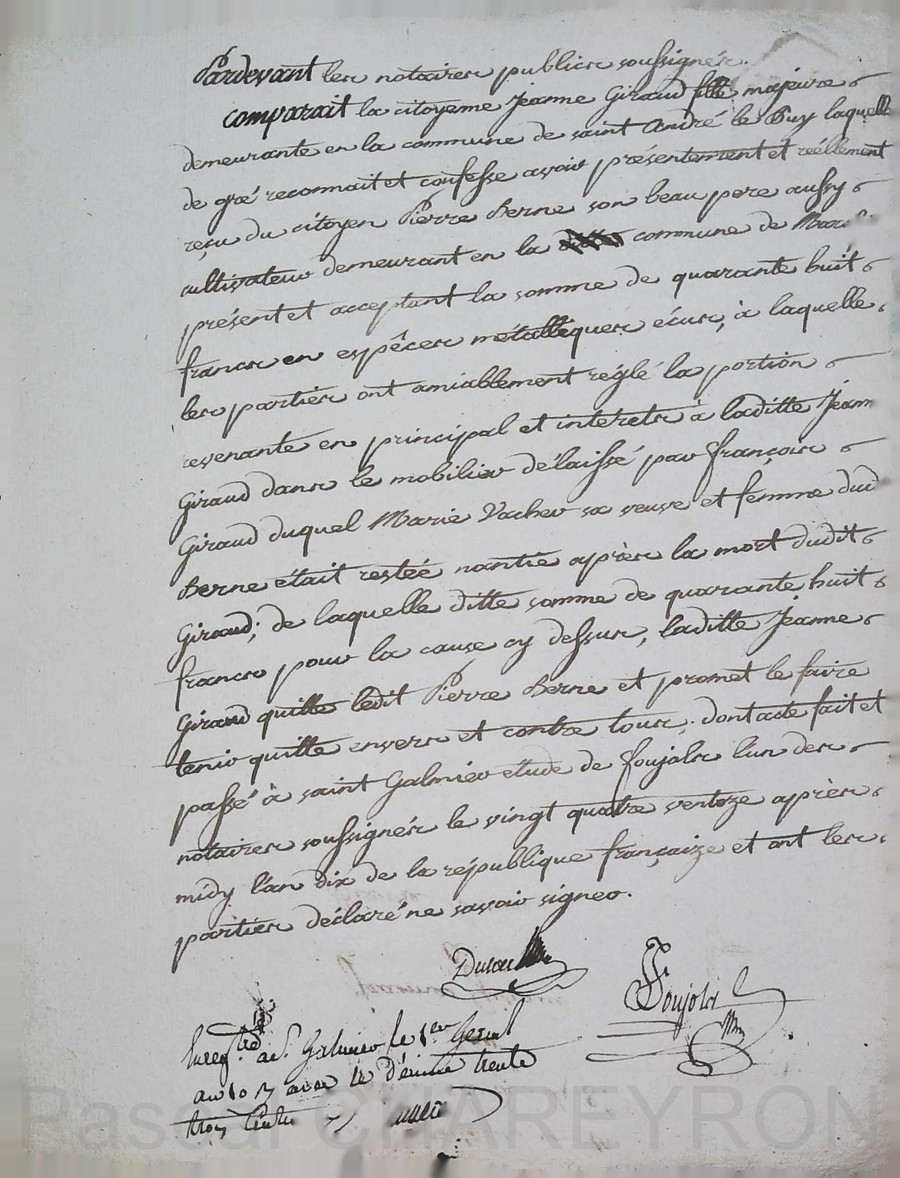 Pardevant les notaires publics soussignés.
comparait la citoyenne Jeanne Giraud fille majeure
demeurante en la commune de saint André le Puy laquelle
de gré reconnait et confesse avoir présentement et réellement
reçu du citoyen Pierre Berne son beau pere aussy
cultivateur demeurant en la commune de
présent et acceptant la somme de quarante huit
francs en espêces métalliques écus, à laquelle
les parties ont amiablement reglé la portion
revenante en principal et interets à laditte Jeann
Giraud dans le mobilier délaissé par françois
Giraud duquel Marie Vacher sa veuve et femme dud
Berne était restée nantie après la mort dudit
Giraud; de laquelle ditte somme de quarante huit
francs pour la cause cy dessus, laditte Jeanne
Giraud quitte ledit Pierre Berne et promet le faire
tenir quitte envers et contre tous. dont acte fait et
passé à saint Galmier etude de foujols l'un des
notaires soussignés le vingt quatre ventoze après
midy l'an dix de la république françaize et ont les
parties déclaré ne savoir signer.
Foujols
Galmier le 1er Germal
an 10
Pascal CHAREYRON